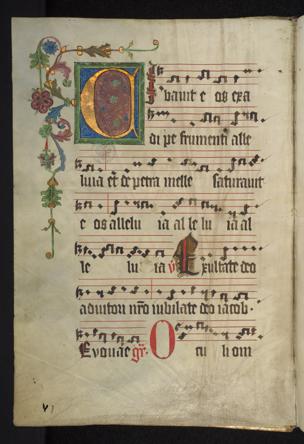 Cibavit e os exa
di pe frumenti alle
luia et de petra melle saturavit
e os allelu ia al le lu ia al
le lu ia v Exultate deo
adiutori nro iubilate deo iacob.
Evovae gr. O cu li om